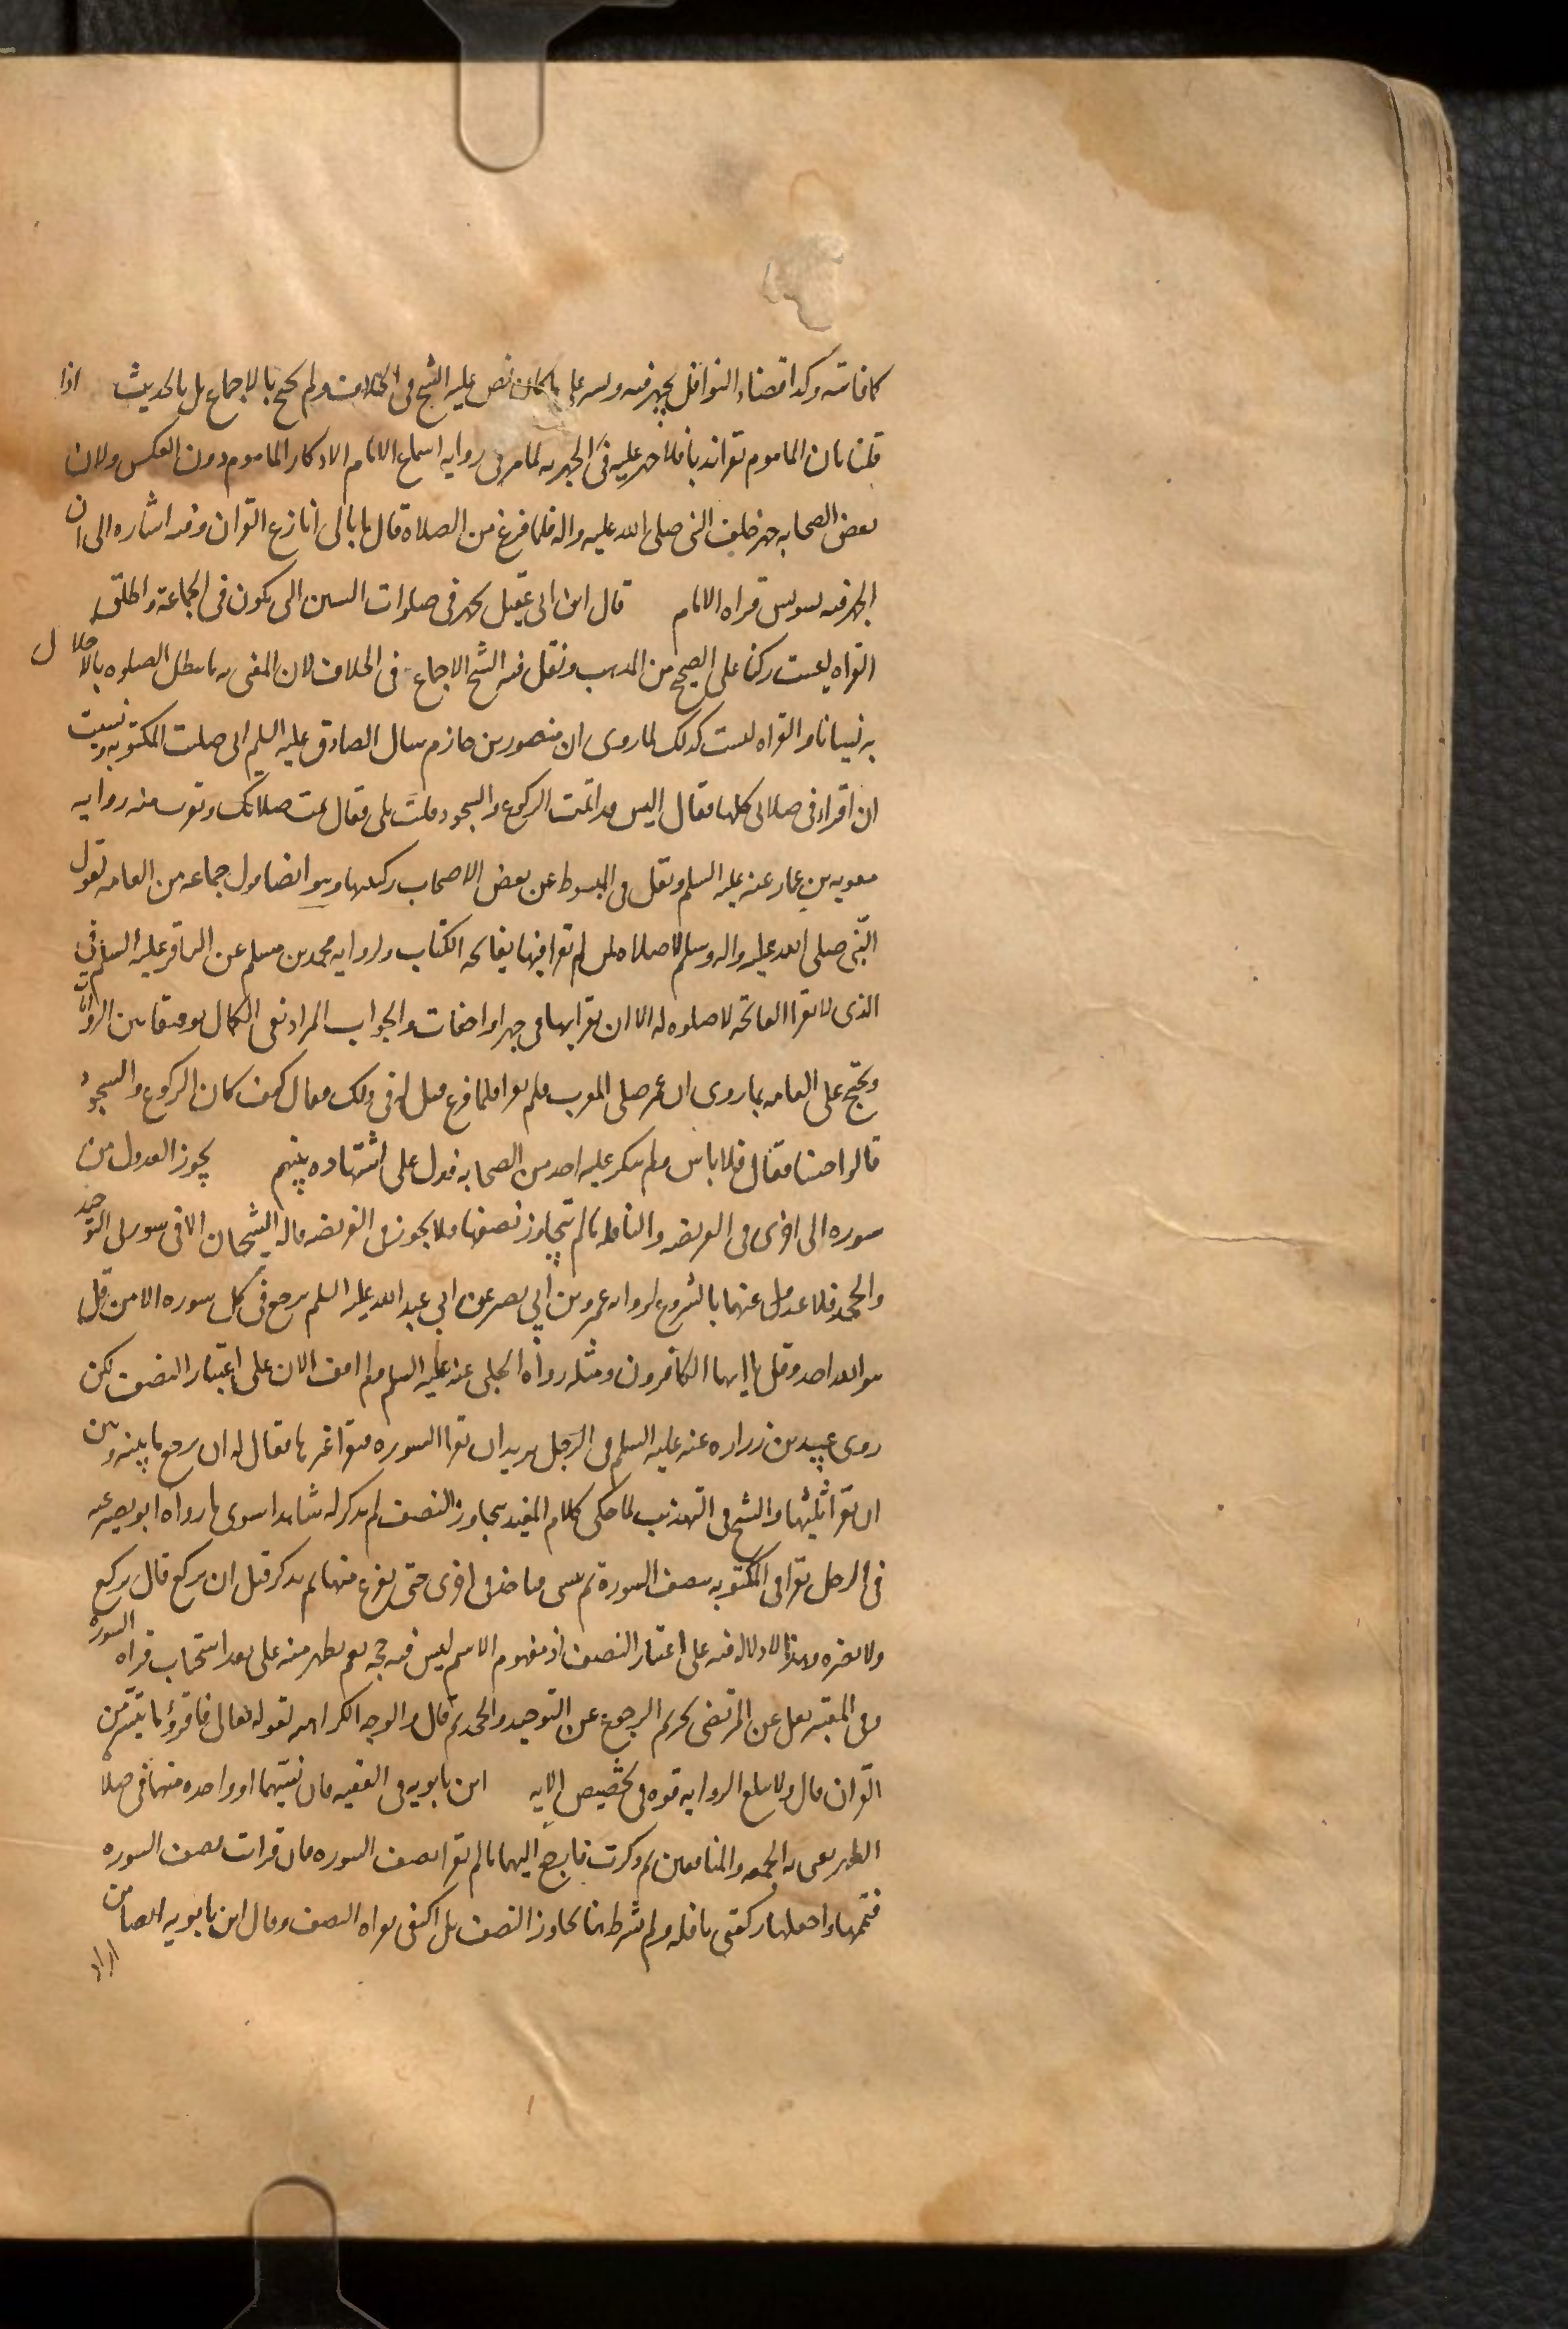 كما فاتته وكذا قضاء النوافل يجهر فيه ويسر على ما كان نص عليه الشيخ في الخلاف ولم يحتج بالاجماع بل بالحديث اذا
قلنا بان الماموم يقرا ندبا فلا جهر عليه في الجهرية لما مر في رواية اسماع الامام الاذكار الماموم دون العكس ولان
بعض الصحابه جهر خلف النبى صلى الله عليه واله فلما فرغ من الصلاة قال ما بالى انازع القران وفيه اشاره الى ان
الجهر فيه يشوش قراه الامام قال ابن ابى عقيل يجهر فى صلوات السنن التى يكون فى الجماعة واطلق
القراه ليست ركنا على الصحيح من المذهب ونقل فيه الشيخ الاجماع فى الخلاف لان المعنى به ما تبطل الصلوه بالاخلال
به نسيانا والقراه ليست كذلك لما روى ان منصور بن حازم سال الصادق عليه السلم انى صلت المكتوبه ونسيت
ان اقراء فى صلاتى كلها فقال اليس قد اتممت الركوع والسجود قلت بلى فقال تمت صلاتك وتقرب منه روايه
معويه بن عمار عنه عليه السلم ونقل فى المبسوط عن بعض الاصحاب ركنيتها وهو ايضا قول جماعه من العامه لقول
النبى صلى الله عليه واله وسلم لا صلاه لمن لم يقرا فيها بفاتحه الكتاب ولروايه محمد بن مسلم عن الباقر عليه السلم فى
الذى لا يقرا الفاتحه لا صلوه له الا ان يقرا بها فى جهر او اخفات والجواب المراد نفى الكمال توفيقا بين الروايات
ويحتج على العامه بما روى ان عمر صلى المغرب فلم يقرا فلما فرغ قيل له فى ذلك فقال كيف كان الركوع والسجود
قالوا حسنا فقال فلا باس فلم ينكر عليه احد من الصحابه فدل على اشتهاره بينهم يجوز العدول من
سوره الى اخرى فى الفريضه والنافله ما لم يتجاوز نصفها فلا يجوز فى الفريضه قاله الشيخان الا فى سورتى التوحيد
والجحد فلا عدول عنهما بالشروع لروايه عمرو بن ابى نصر عن ابى عبد الله عليه السلم يرجع فى كل سوره الا من قل
هو الله احد وقل يا ايها الكافرون ومثله رواه الحلبى عنه عليه السلم ولم اقف الان على اعتبار النصف لكن
روى عبيد بن زراره عنه عليه السلم فى الرجل يريد ان يقرا السوره فيقرا غيرها فقال له ان يرجع ما بينه وبين
ان يقرا ثلثيها والشيخ فى التهذيب لما حكى كلام المفيد بتجاوز النصف لم يذكر له شاهدا سوى ما رواه ابو بصير عنه
فى الرجل يقرا فى المكتوبه بنصف السورة ثم ينسى فياخذ فى اخرى حتى يفرغ منها ثم يذكر قبل ان يركع قال يركع
ولا يضره وهذا لا دلاله فيه على اعتبار النصف اذ مفهوم الاسم ليس فيه حجه نعم يظهر منه على بعد استحباب قراه السوره
وفى المعتبر نقل عن المرتضى تحريم الرجوع عن التوحيد والجحد ثم قال والوجه الكراهيه لقوله تعالى فاقروا ما تيسر من
القران قال ولا تبلغ الروايه قوه فى تخصيص الايه ابن بابويه فى الفقيه فان نسيتهما او واحده منهما فى صلاة
الظهر يعنى به الجمعه والمنافقين ثم ذكرت فارجع اليهما ما لم تقرا نصف السوره فان قرات نصف السوره
فتممها واجعلها ركعتى نافله ولم يشرط هنا تجاوز النصف بل اكتفى بقراه النصف وقال ابن بابويه ايضا من
اراد